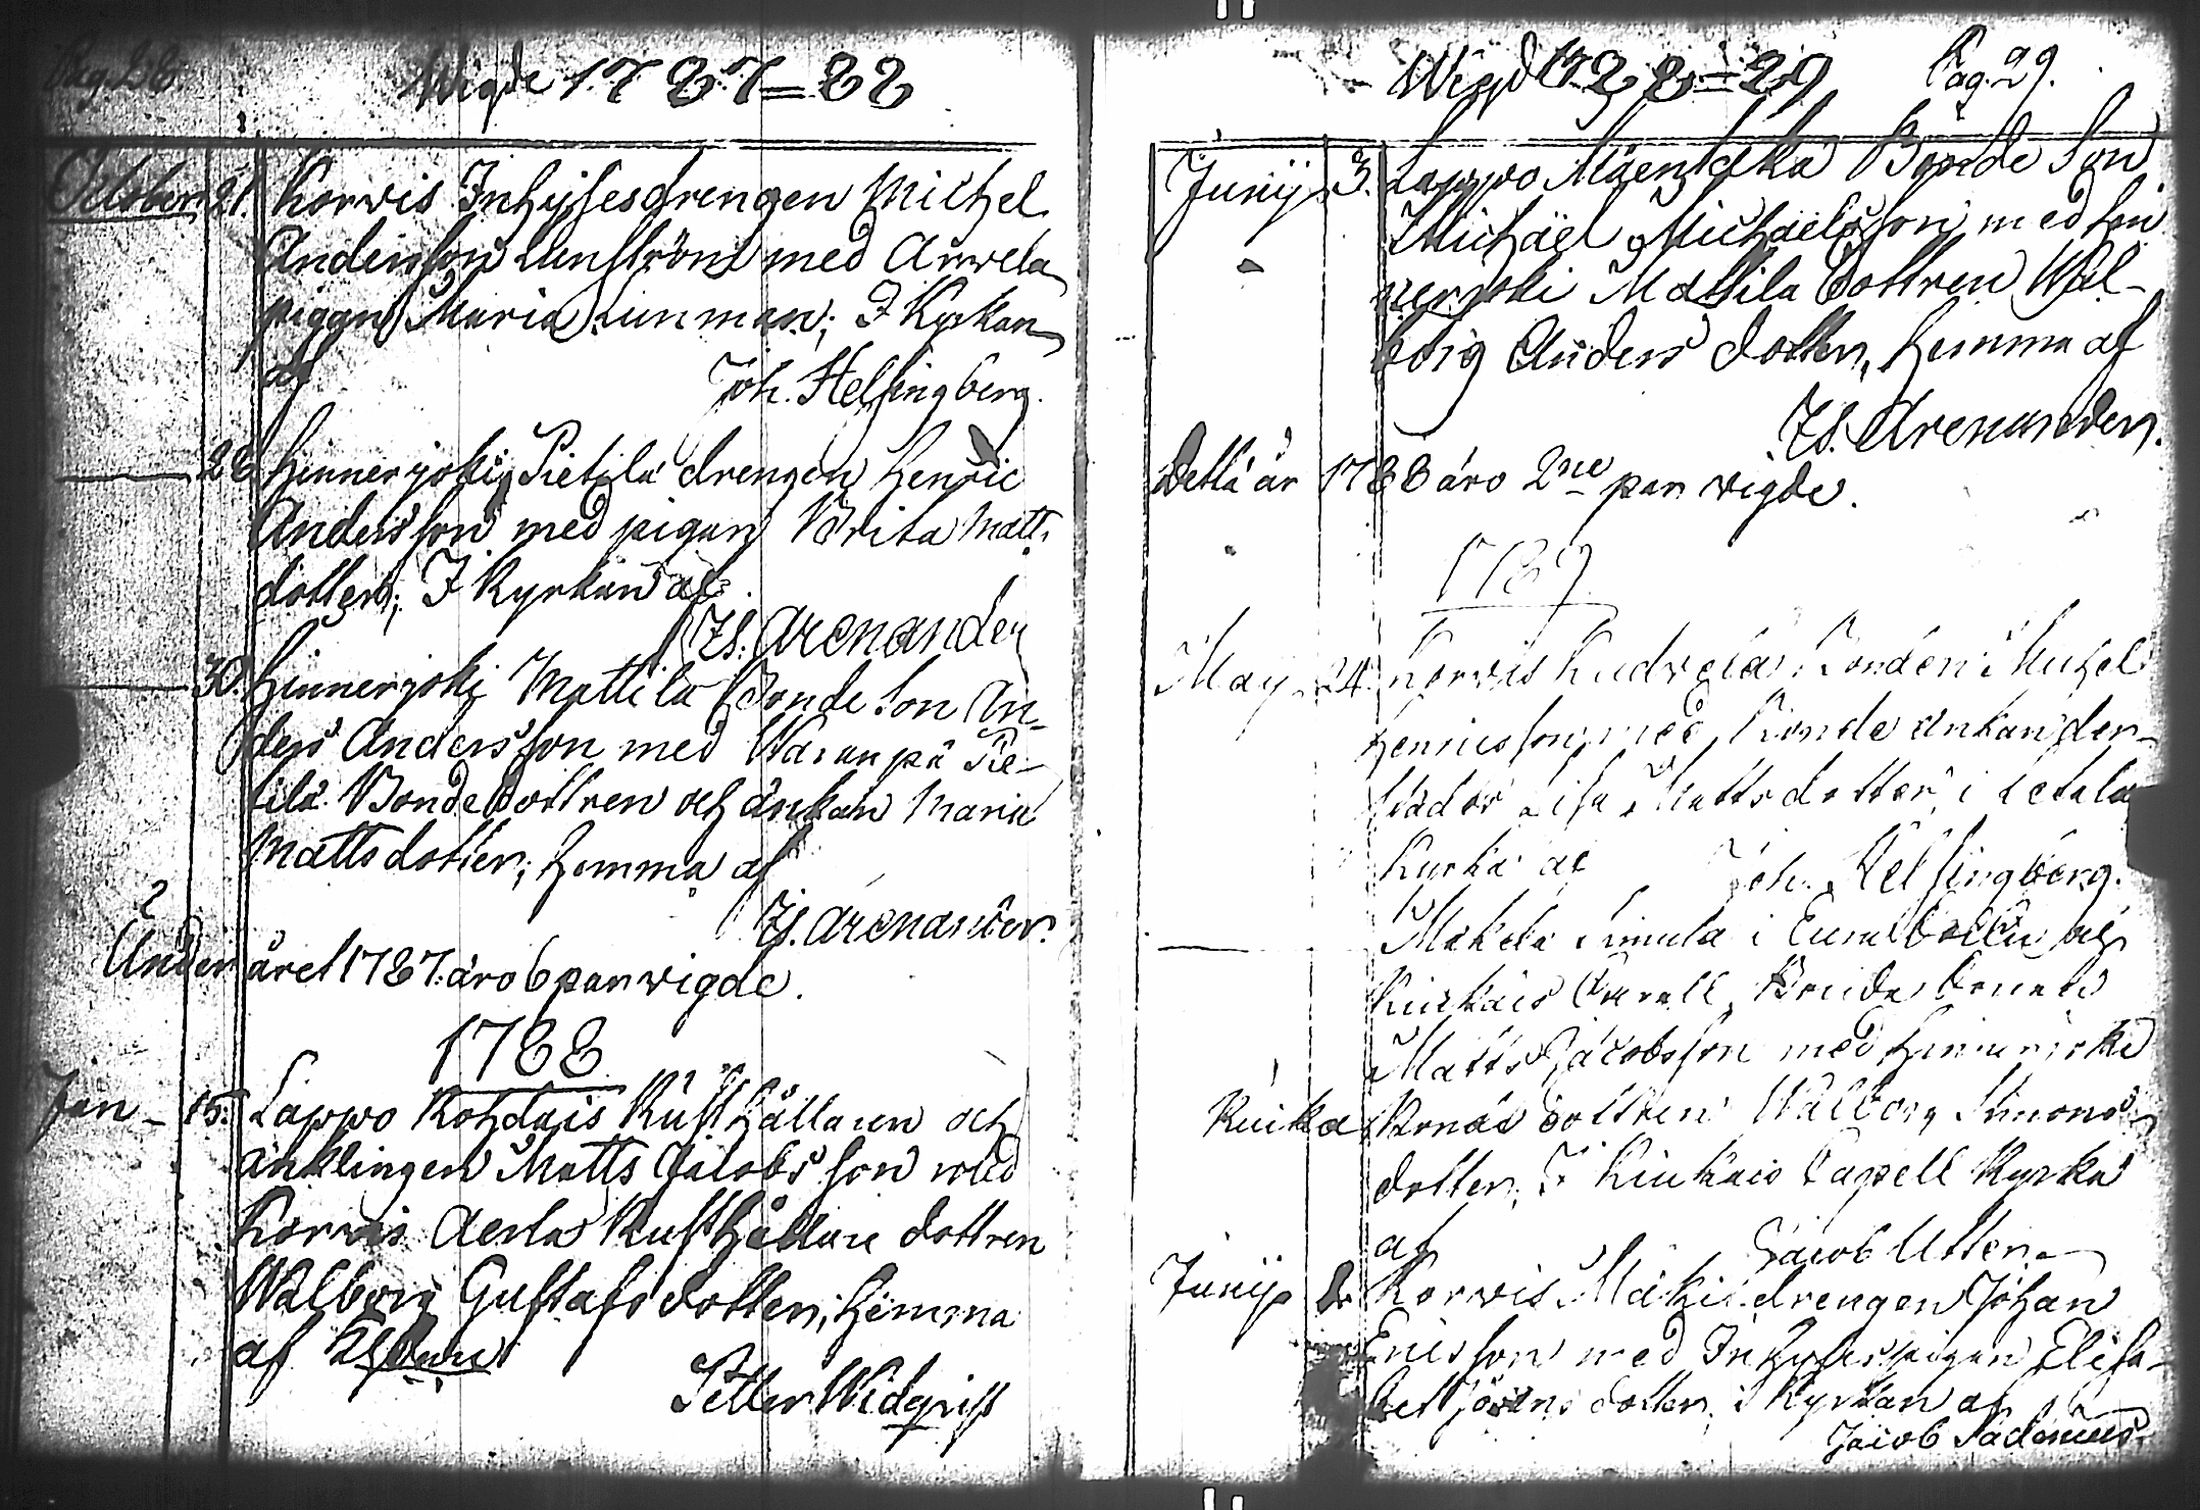 Pag. 28.
Wigde 1787=88
October 21. Korvis Inhysesdrengen Michel
Andersson Lunström med Arvela
pigan Maria Lunman; I Kyrkan
af Joh. Helsingberg.
28 Hinnerjoki Pietilä drengen Henric
Andersson med pigan Brita Matts
dotter; I Kyrkan af
Is. Arenander
30. Hinnerjoki Mattila Bonde Son An-
ders Andersson med Waranpä Pie-
tilä Bondedottren och änkan Maria
Mattsdotter; hemma af
Is. Arenander.
Under året 1787 äro 6 par vigde.
1788
Jan - 15. Lappo Kohdais Rusthållaren och
änklingen Matts Jacobsson med
Korvis Aerla Rusthållare dottren
Walborg Gustafsdotter; hemma
af
Petter Widqvist
Wigd 1788=89 Pag. 29.
Junij 3. Lappo Mäenpäkä Bonde Son
Michäel Michaelsson med hin
nerjoki Mattila dottren Wal-
borg Anders dotter, hemma af
Is. Arenander.
Detta år 1788 äro 2ne par vigde.
1789
May 24. Korvis Bonden Michel
Henricsson med Bonde änkan
Lisa Mattsdotter i Letala
Kyrka af Joh. Helsingberg.
Simula i Eura
Kiukais Capell, Bonde
Matts Jacobsson med Hinnerjoki
dottren Walborg Simons
dotter; I Kiukais Capell Kyrka
af Jacob Utter
Junij Korvis Mäki drengen Johan
Ericsson med Inhyses pigan Elisa-
bet Jöransdotter i Kyrkan af
Jacob Sadenius